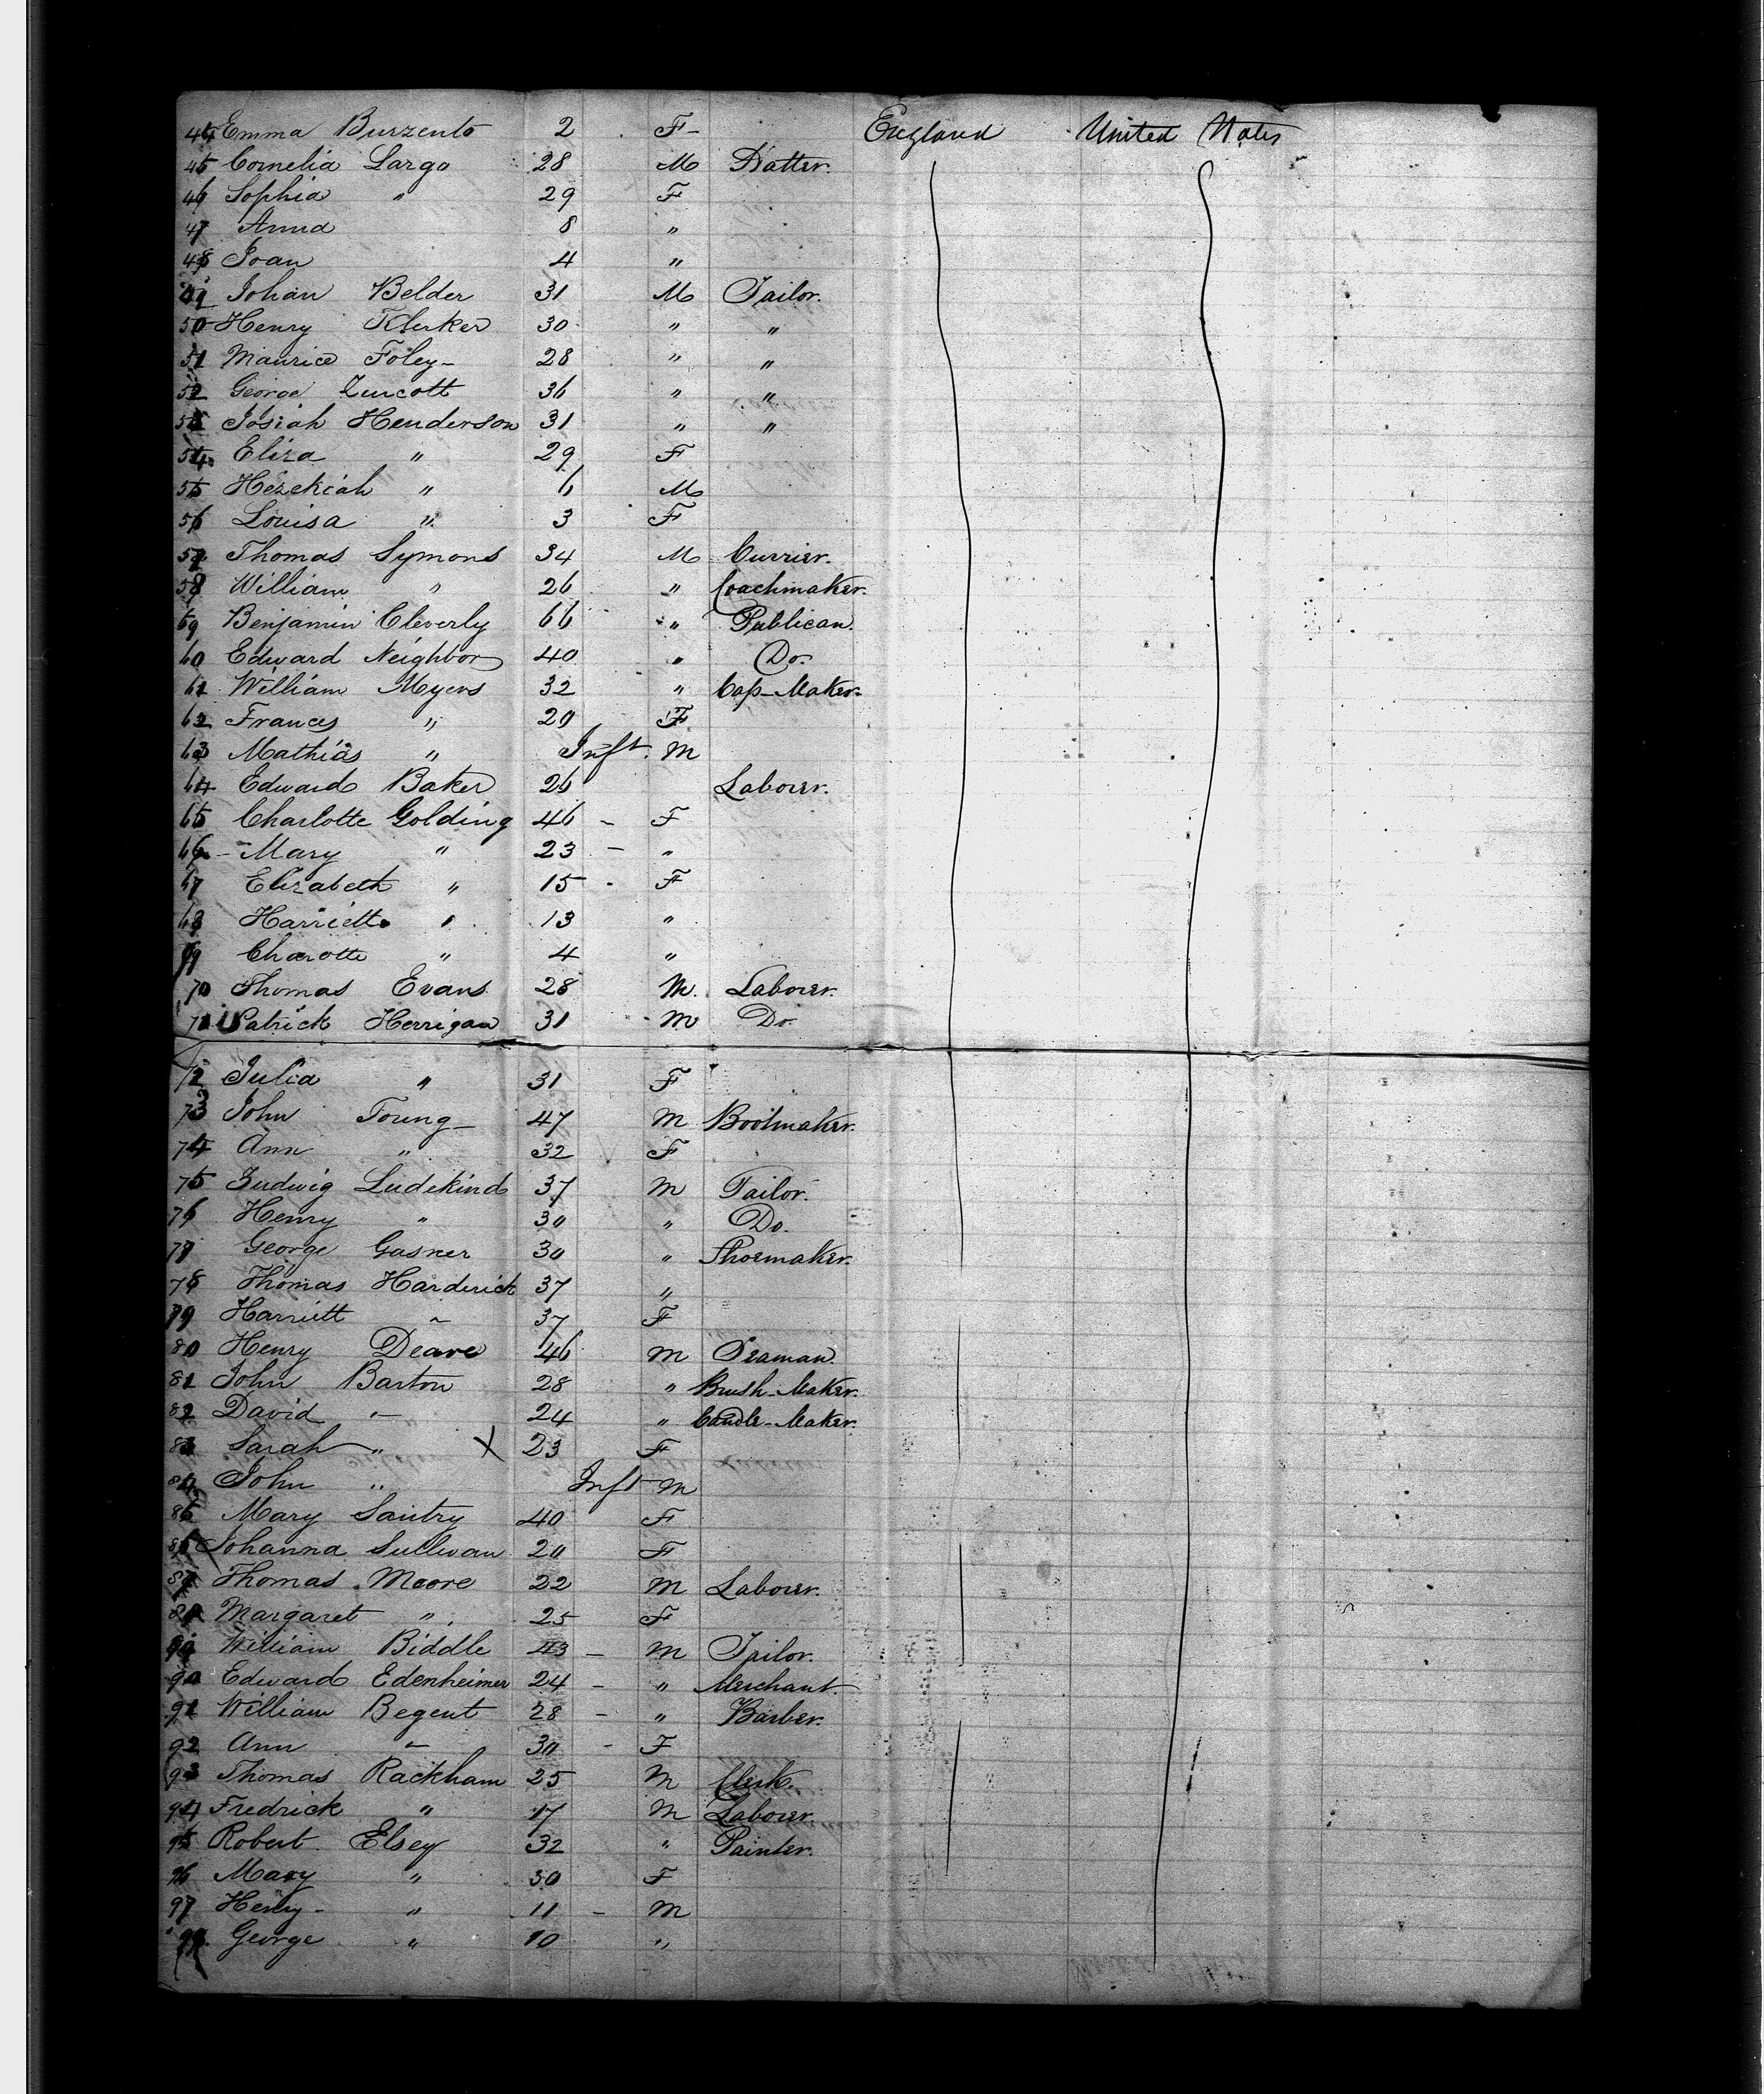 44 Emma Burzento 2 F England United States
45 Cornelia Largo 28 M Hatter.
46 Sophia " 29 F
47 Anna 8 "
48 Joan 4 "
49 Johan Belder 31 M Tailor.
50 Henry Klerker 30 " "
51 Maurice Foley 28 " "
52 George Luscott 36 " "
53 Josiah Henderson 31 " "
54 Eliza " 29 F
55 Hezekiah " 6 M
56 Louisa " 3 F
57 Thomas Symons 34 M Currier.
58 William " 26 " Coachmaker.
59 Benjamin Cleverly 66 " Publican.
60 Edward Neighbor 40 " Do.
61 William Myers 32 " Cap-Maker.
62 Frances " 20 F
63 Mathias " Inft. M
64 Edward Baker 26 Laborer.
65 Charlotte Golding 46 - F
66 Mary " 23 - "
67 Elizabeth " 15 - F
68 Harriett " 13 "
69 Charotte " 4 "
70 Thomas Evans 28 M. Laborer.
71 Patrick Herrigan 31 M Do.
72 Julia " 31 F
73 John Toung 47 M Bootmaker.
74 Ann " 32 F
75 Ludwig Ludekind 37 M Tailor.
76 Henry " 30 " Do.
77 George Gasner 30 " Shoemaker.
78 Thomas Harderick 37 "
79 Harriett " 37 F
80 Henry Deare 46 M Seaman.
81 John Barton 28 " Brush-Maker.
82 David " 24 " Candle-Maker.
83 Sarah " X 23 F
84 John " Inft M
85 Mary Santry 40 F
86 Johanna Sullivan 20 F
87 Thomas Moore 22 M Laborer.
88 Margaret " 25 F
89 William Biddle 43 - M Tailor.
90 Edward Edenheimer 24 - " Merchant.
91 William Begent 28 - " Barber.
92 Ann " 30 - F
93 Thomas Rackham 25 M Clerk.
94 Fredrick " 17 M Laborer.
95 Robert Elsey 32 " Painter.
96 Mary " 30 F
97 Henry " 11 - M
98 George " 10 "